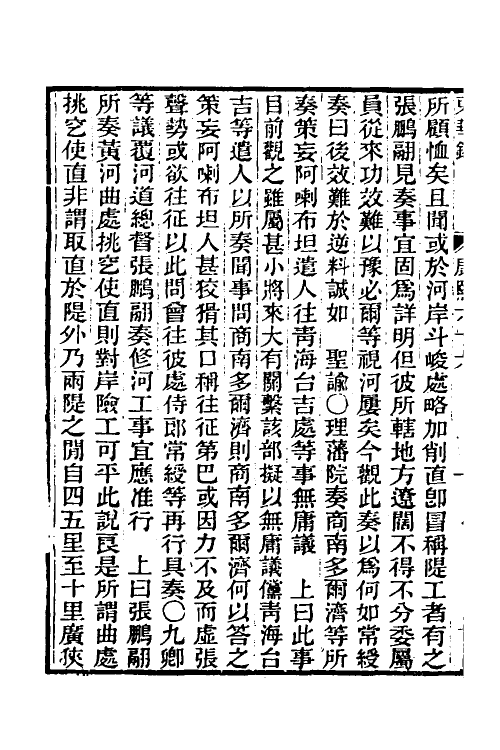 所顧恤矣且聞或於河岸斗峻處略加削直卽冒稱隄工者有之
張鵬翮見奏事宜固爲詳明但彼所轄地方遼闊不得不分委屬
員從來功效難以豫必爾等視河屢矣今觀此奏以爲何如常綬
奏曰後效難於逆料誠如　聖諭○理藩院奏商南多爾濟等所
奏策妄阿喇布坦遣人往靑海台吉處等事無庸議　上曰此事
目前觀之雖屬甚小將來大有關繫該部擬以無庸議儻靑海台
吉等遣人以所奏聞事問商南多爾濟則商南多爾濟何以答之
策妄阿喇布坦人甚狡猾其口稱往征第巴或因力不及而虛張
聲勢或欲往征以此問會往彼處侍郎常綬等再行具奏○九卿
等議覆河道總督張鵬翮奏修河工事宜應准行　上曰張鵬翮
所奏黃河曲處挑空使直則對岸險工可平此說良是所謂曲處
挑空使直非謂取直於隄外乃兩隄之閒自四五里至十里廣狹